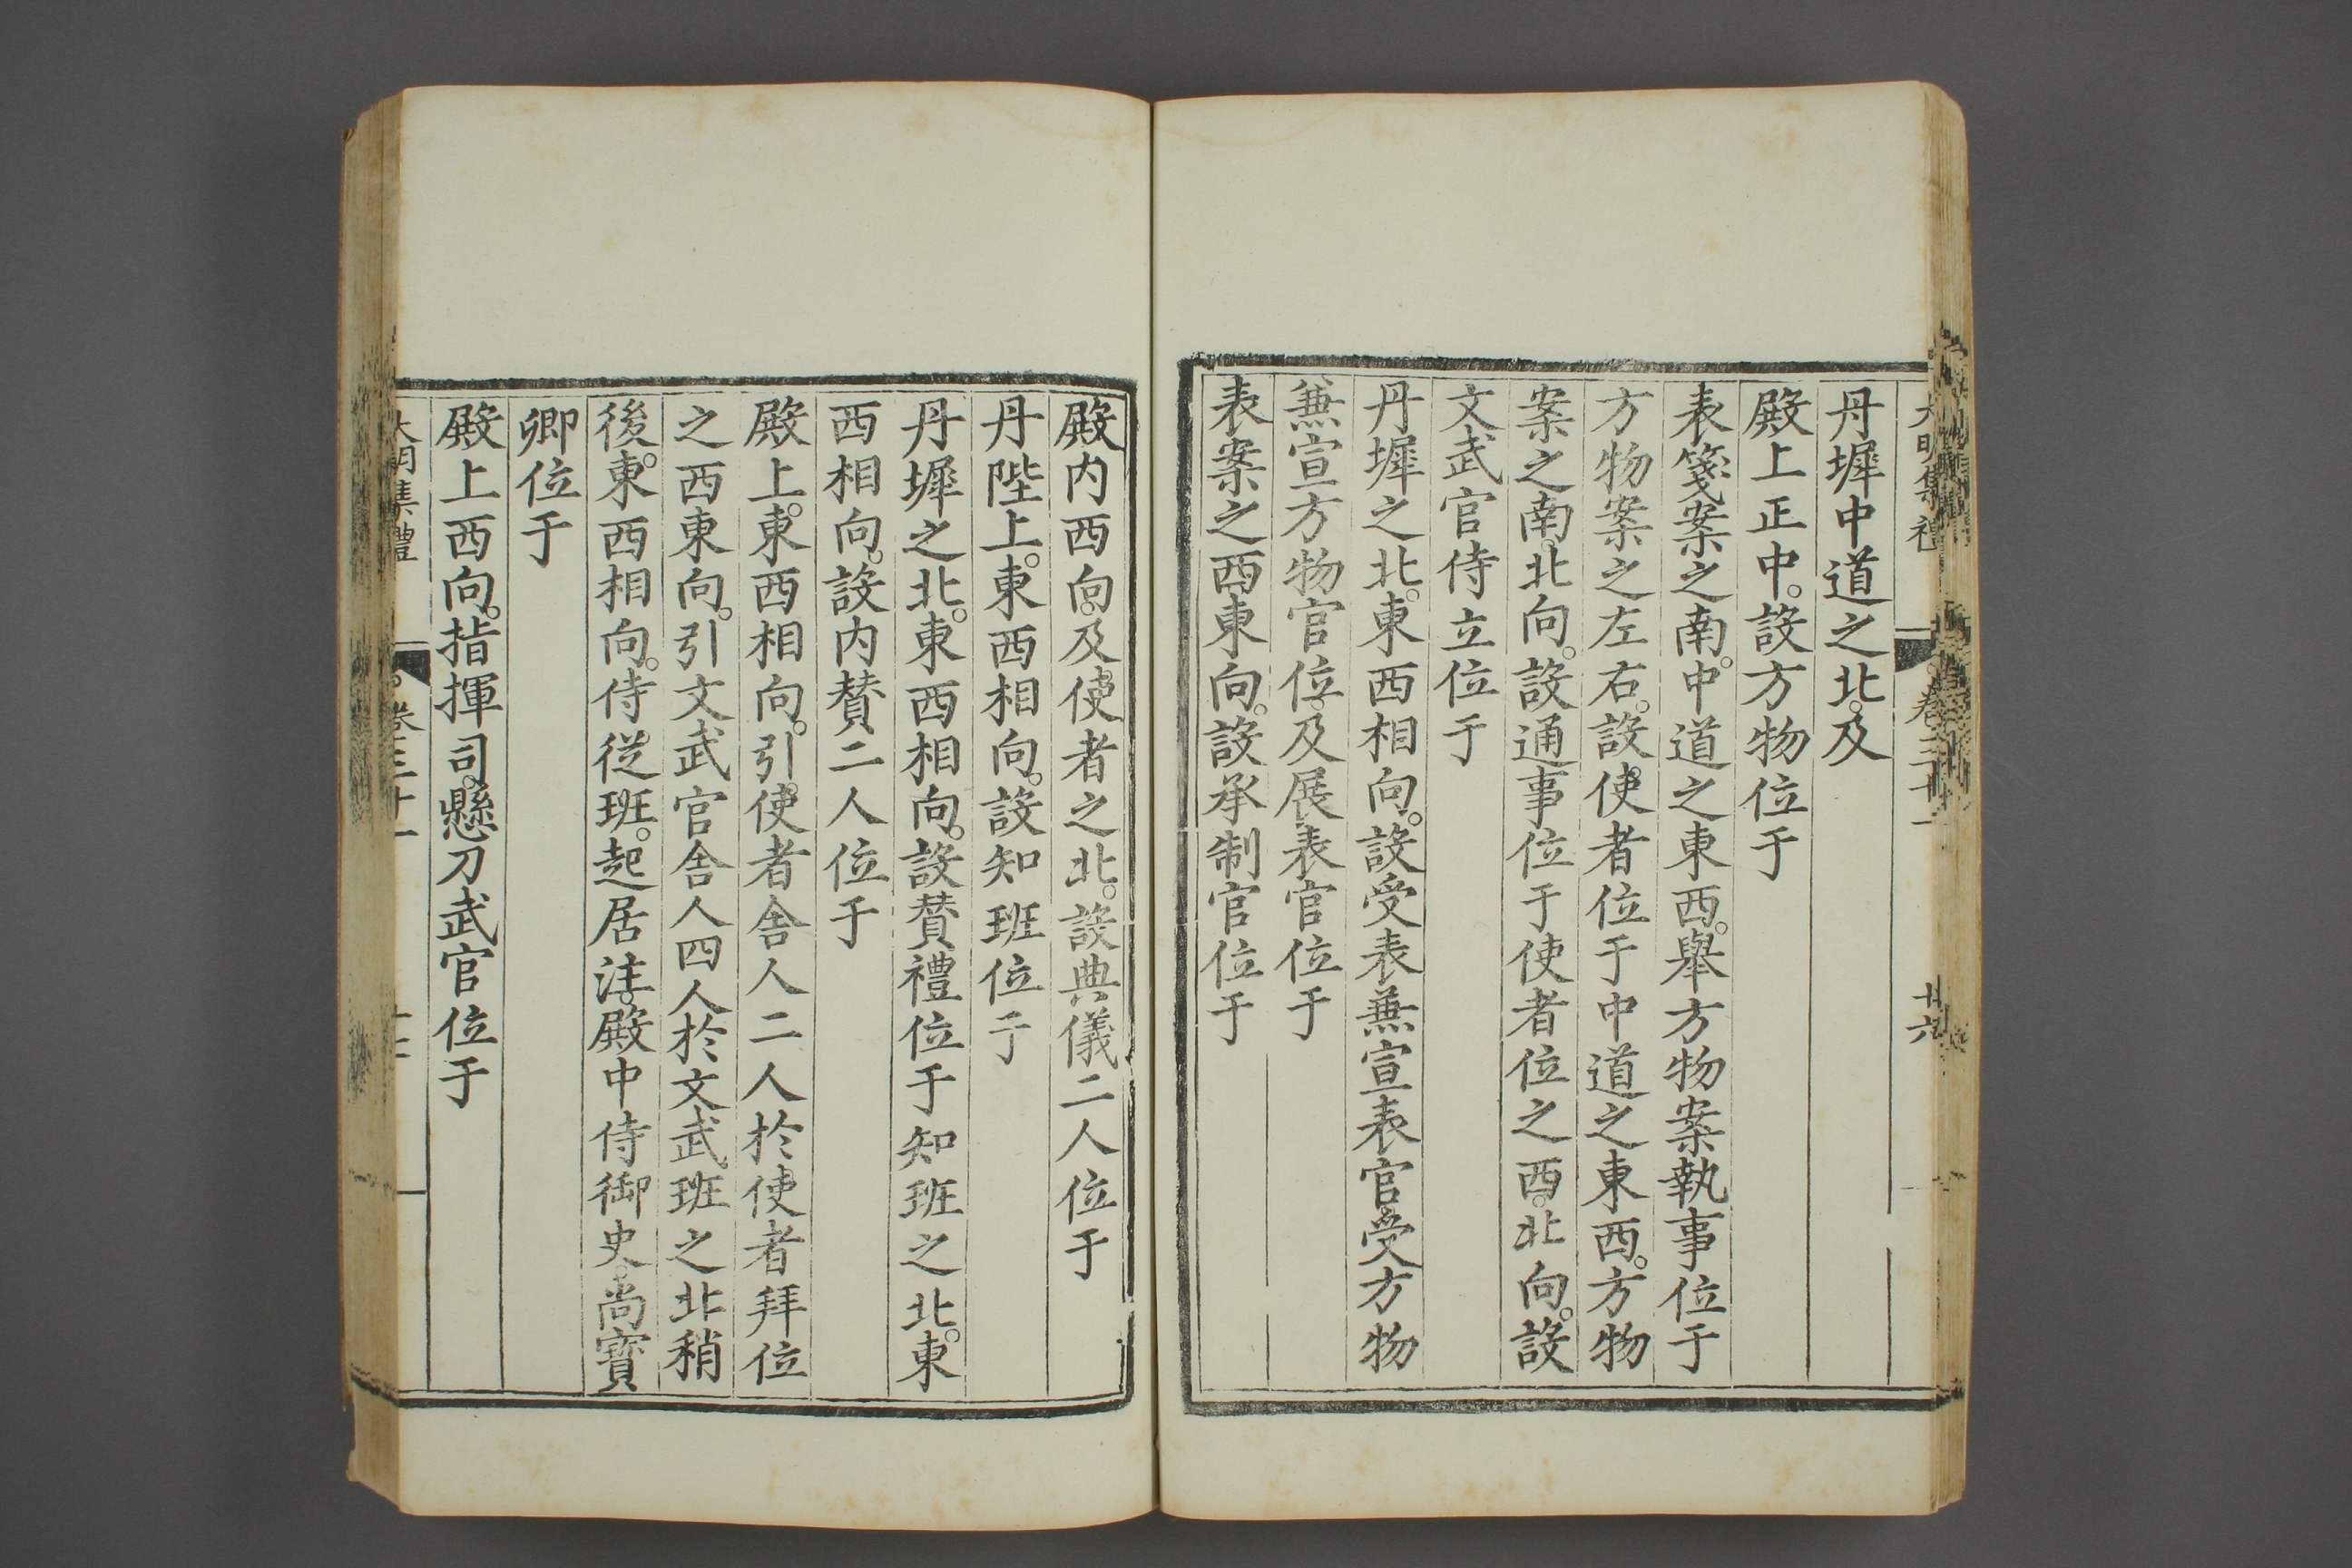 大明集禮
卷三十一
廿六
丹墀中道之北。及
殿上正中。設方物位于
表箋案之南。中道之東西。舉方物案執事位于
方物案之左右。設使者位于中道之東西。方物
案之南。北向。設通事位于使者位之西。北向。設
文武官侍立位于
丹墀之北。東西相向。設受表兼宣表官受方物
兼宣方物官位。及展表官位于
表案之西東向。設承制官位于
殿内西向。及使者之北。設典儀二人位于
丹陛上。東西相向。設知班位于
丹墀之北。東西相向。設贊禮位于知班之北。東
西相向。設内贊二人位于
殿上。東西相向。引使者舍人二人於使者拜位
之西東向。引文武官舍人四人於文武班之北稍
後。東西相向。侍從班。起居注。殿中侍御史。尚寶
卿位于
殿上西向。指揮司。懸刀武官位于
大明集禮
卷三十一